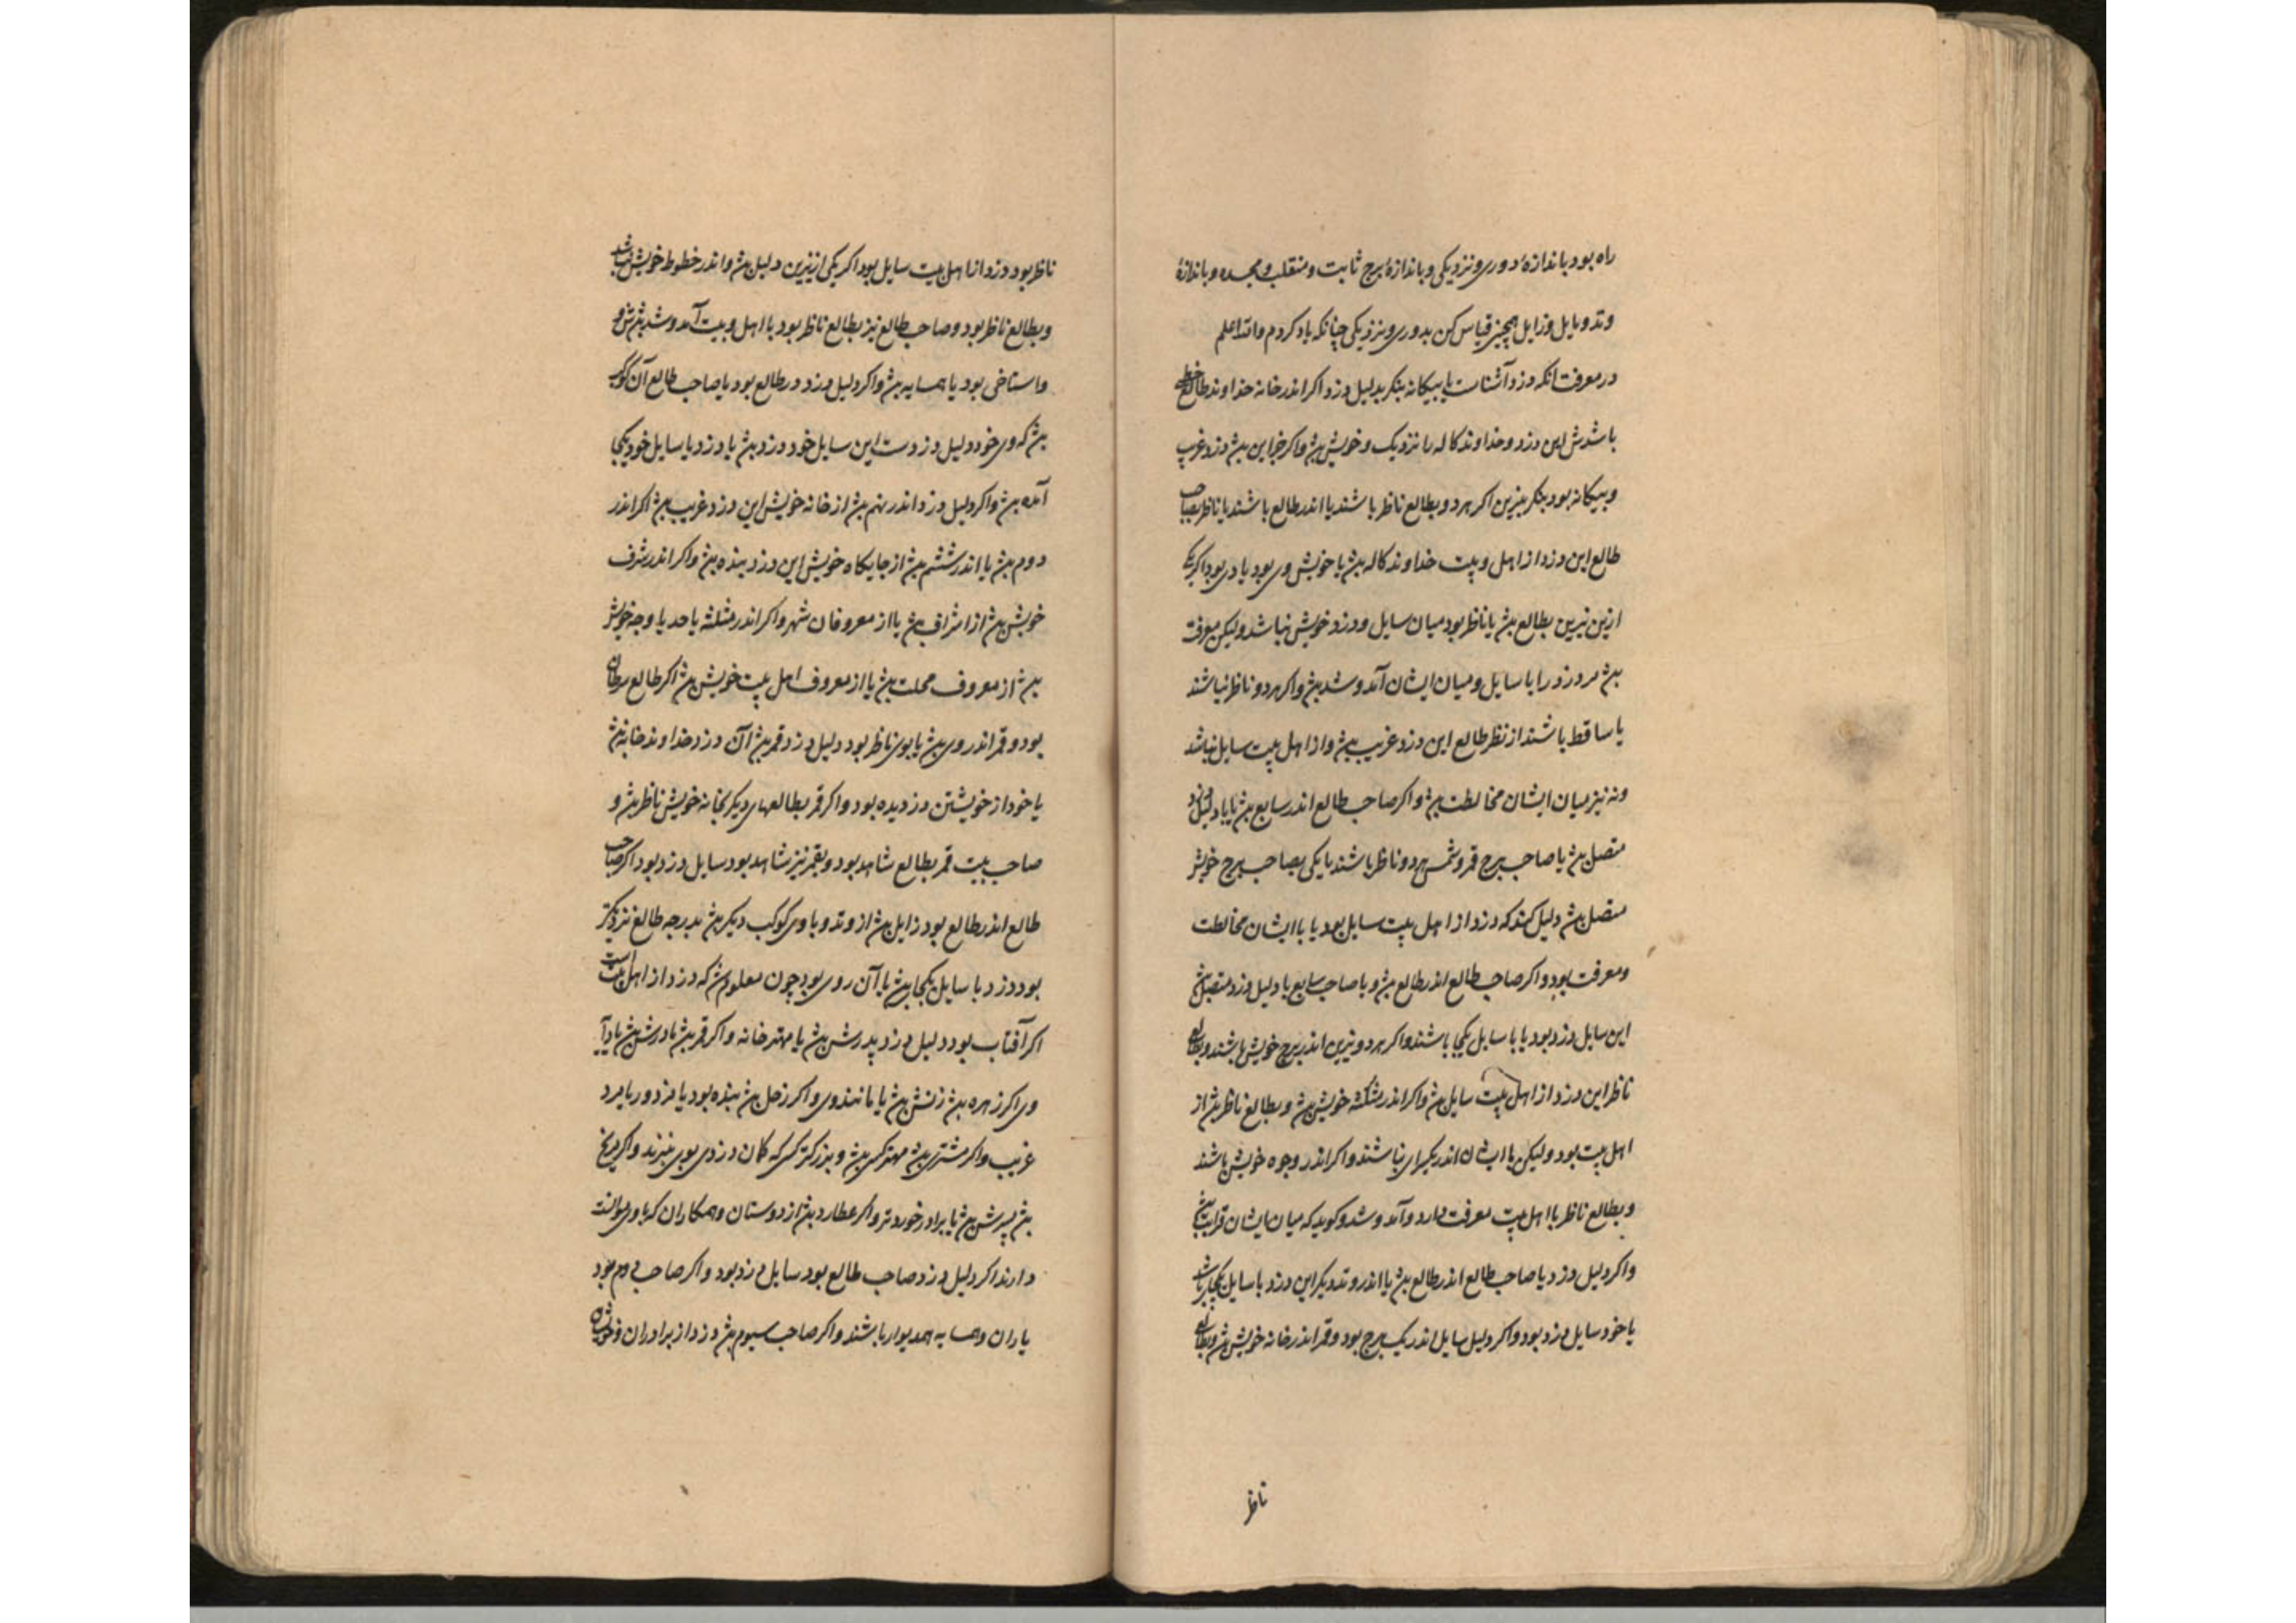 راه بود باندازهٔ دوری و نزدیکی و باندازهٔ برج ثابت و منقلب و مجسده و باندازهٔ
وتد و مایل و زایل همچنین قیاس کن بدوری و نزدیکی چنانکه یاد کردم والله اعلم
در معرفت انکه دزد آشناست یا بیکانه بنکر بدلیل دزد اکر اندر خانه خداوند طالع
باشد این دزد و خداوند کاله را نزدیک و خویش بش و اکر جز این بش دزد غریب
و بیکانه بود بنکر بنیرین اکر هر دو بطالع ناظر باشند یا اندر طالع باشند یا ناظر بصاحب
طالع این دزد از اهل و بیت خداوند کاله بش یا خویش وی بود یا دی بود اکر یکی
ازین نیرین بطالع بش یا ناظر بود میان سایل و دزد خویش نباشد ولیکن معرفت
بش مر دزد را با سایل و میان ایشان آمد و شد بش و اکر هر دو ناظر نباشند
یا ساقط باشند از نظر طالع این دزد غریب بش و از اهل بیت سایل نباشد
و نه نیز میان ایشان مخالطت بش و اکر صاحب طالع اندر سابع بش یا با دلیل دزد
متصل بش یا صاحب برج قمر و شمس هر دو ناظر باشند یا یکی بصاحب برج خویش
متصل بش دلیل کند که دزد از اهل بیت سایل بود یا با ایشان مخالطت
و معرفت بود و اکر صاحب طالع اندر طالع بش و با صاحب سابع یا دلیل دزد متصل بش
این سایل دزد بود یا با سایل یکجا باشند و اکر هر دو نیرین اندر برج خویش باشند و بطالع
ناظر این دزد از اهل بیت سایل بش و اکر اندر مثلثه خویش بش و بطالع ناظر بش از
اهل بیت بود ولیکن با ایشان اندر یکسرای نباشند و اکر اندر وجوه خویش باشند
و بطالع ناظر با اهل بیت معرفت دارد و آمد و شد و کوید که میان ایشان قرابت بش
و اکر دلیل دزد یا صاحب طالع اندر طالع بش یا اندر وتد دیکر این دزد با سایل یکجا باشد
یا خود سایل دزد بود و اکر دلیل سایل اندر یک برج بود و قمر اندر خانه خویش بش و بطالع
ناظر
ناظر بود دزد از اهل بیت سایل بود اکر یکی از نیرین دلیل بش و اندر خطوط خویش باشد
و بطالع ناظر بود و صاحب طالع نیز بطالع ناظر بود با اهل و بیت آمد و شد بش
و استاخی بود یا همسایه بش و اکر دلیل دزد در طالع بود یا صاحب طالع آن کوکب
بش که وی خود دلیل دزدست این سایل خود دزد بش یا دزد با سایل خود یکجا
آمده بش و اکر دلیل دزد اندر نهم بش از خانه خویش این دزد غریب بش اکر اندر
دوم بش یا اندر ششم بش از جایکاه خویش این دزد بنده بش و اکر اندر شرف
خویش بش از اشراف بش یا از معروفان شهر و اکر اندر مثلثه یا حد یا وجه خویش
بش از معروف محلت بش یا از معروف اهل بیت خویش بش اکر طالع سرطان
بود و قمر اندر وی بش یا بوی ناظر بود دلیل دزد قمر بش آن دزد خداوند خانه بش
یا خود از خویشتن دزدیده بود و اکر قمر بطالعهای دیکر بخانه خویش ناظر بش و
صاحب بیت قمر بطالع شاهد بود و بقمر نیز شاهد بود سایل دزد بود اکر صاحب
طالع اندر طالع بود زایل بش از وتد و با وی کوکب دیکر بش بدرجه طالع نزدیکتر
بود دزد با سایل یکجا بش یا آن روی بود چون معلوم بش که دزد از اهل بیت است
اکر آفتاب بود دلیل دزد پدرش بش یا مهتر خانه و اکر قمر بش مادرش بش یا
وی اکر زهره بش زنش بش یا مانند وی و اکر زحل بش بنده بود یا مزدور یا مرد
غریب و اکر مشتری بش مهتر کس بش و بزرکتر کس که کمان دزدی بوی نبرند و اکر مریخ
بش پسرش بش یا برادر خوردتر و اکر عطارد بش از دوستان و همکاران که با وی موالفت
دارند اکر دلیل دزد صاحب طالع بود سایل دزد بود و اکر صاحب دوم بود
یاران و همسایه همدیوار باشند و اکر صاحب سیوم بش دزد از برادران و